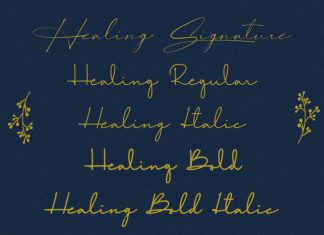 Healing Signature
Healing Regular
Healing Italic
Healing Bold
Healing Bold Italic